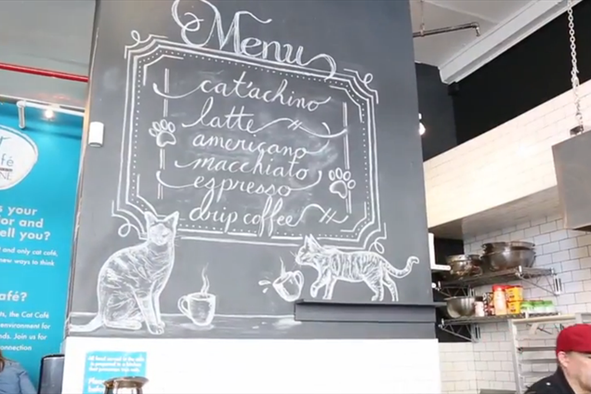 Menu
cat'achino
latte
americano
macchiato
espresso
drip coffee
s your
or and
ell you?
and only cat café,
new ways to think
afé?
ts, the Cat Café
environment for
nds. Join us for
connection